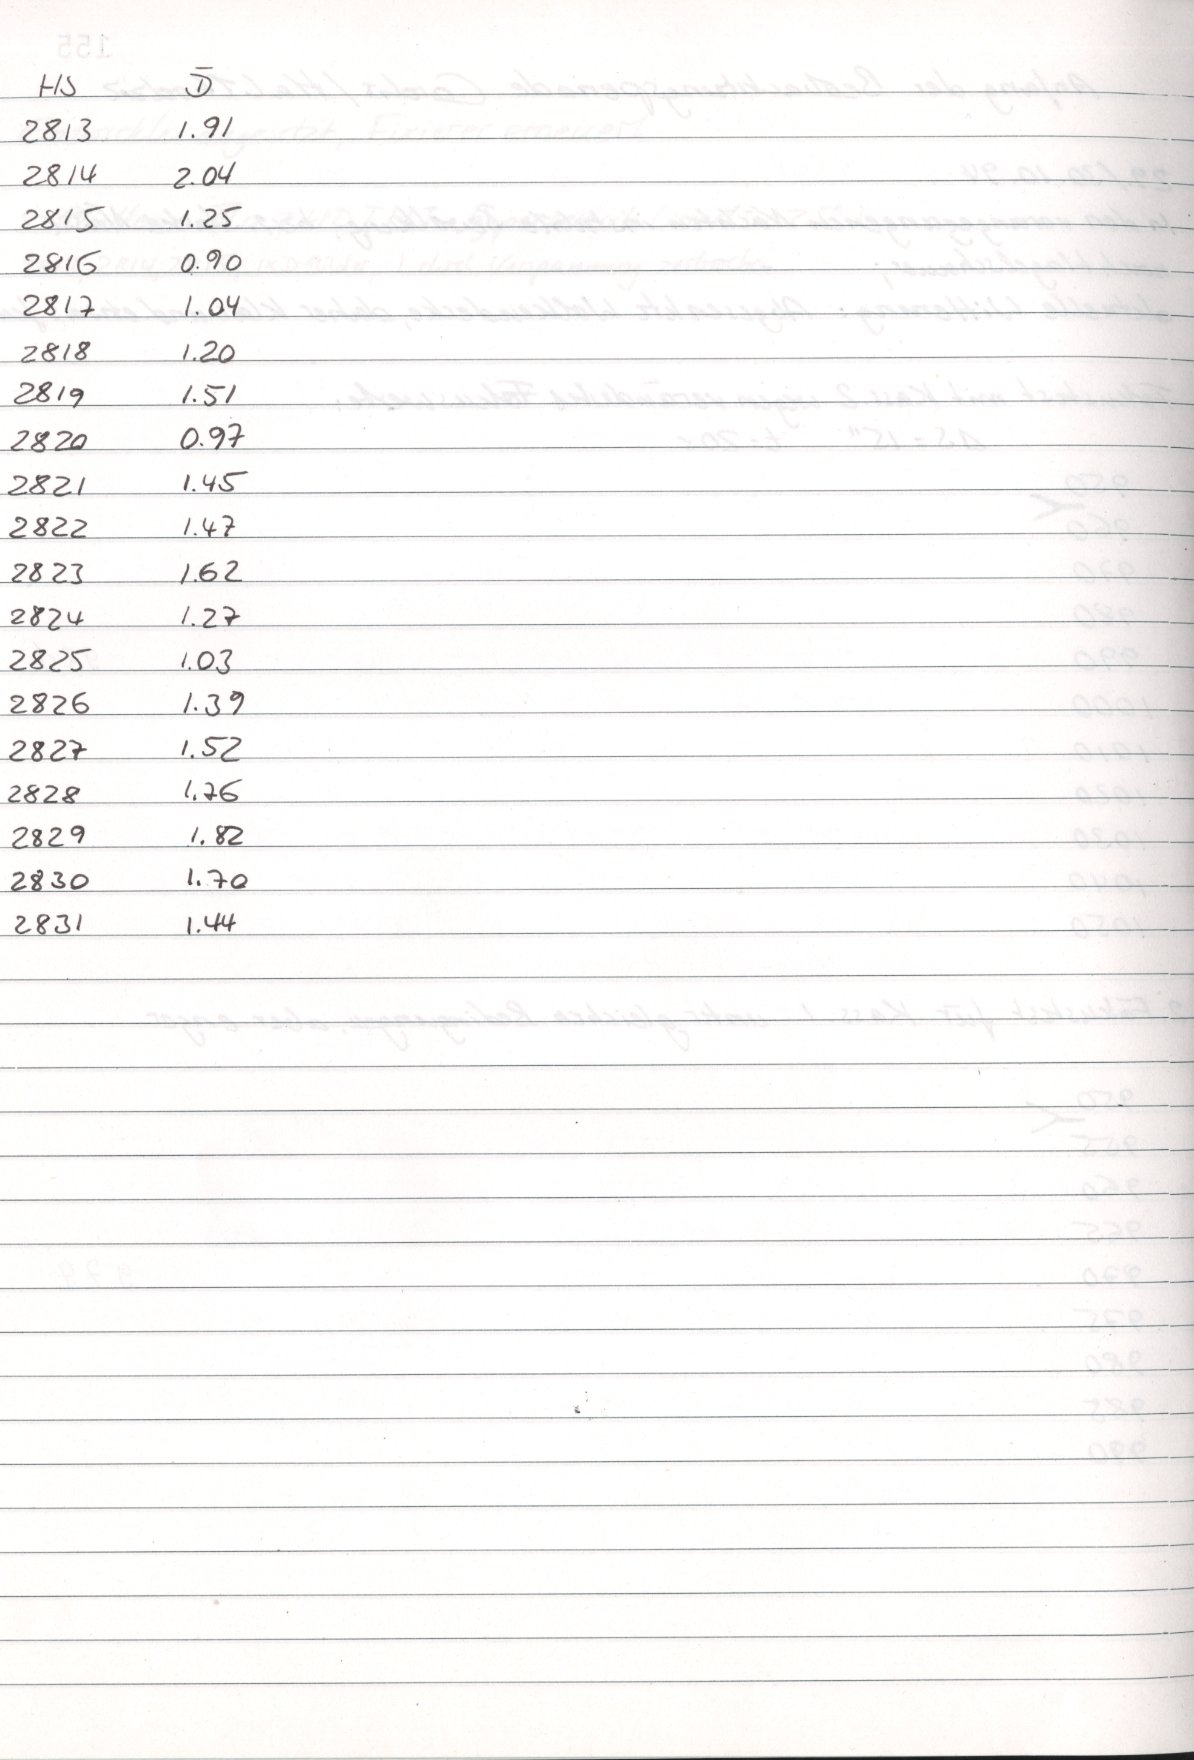 HS D̅
2813 1.91
2814 2.04
2815 1.25
2816 0.90
2817 1.04
2818 1.20
2819 1.51
2820 0.97
2821 1.45
2822 1.47
2823 1.62
2824 1.27
2825 1.03
2826 1.39
2827 1.52
2828 1.76
2829 1.82
2830 1.70
2831 1.44